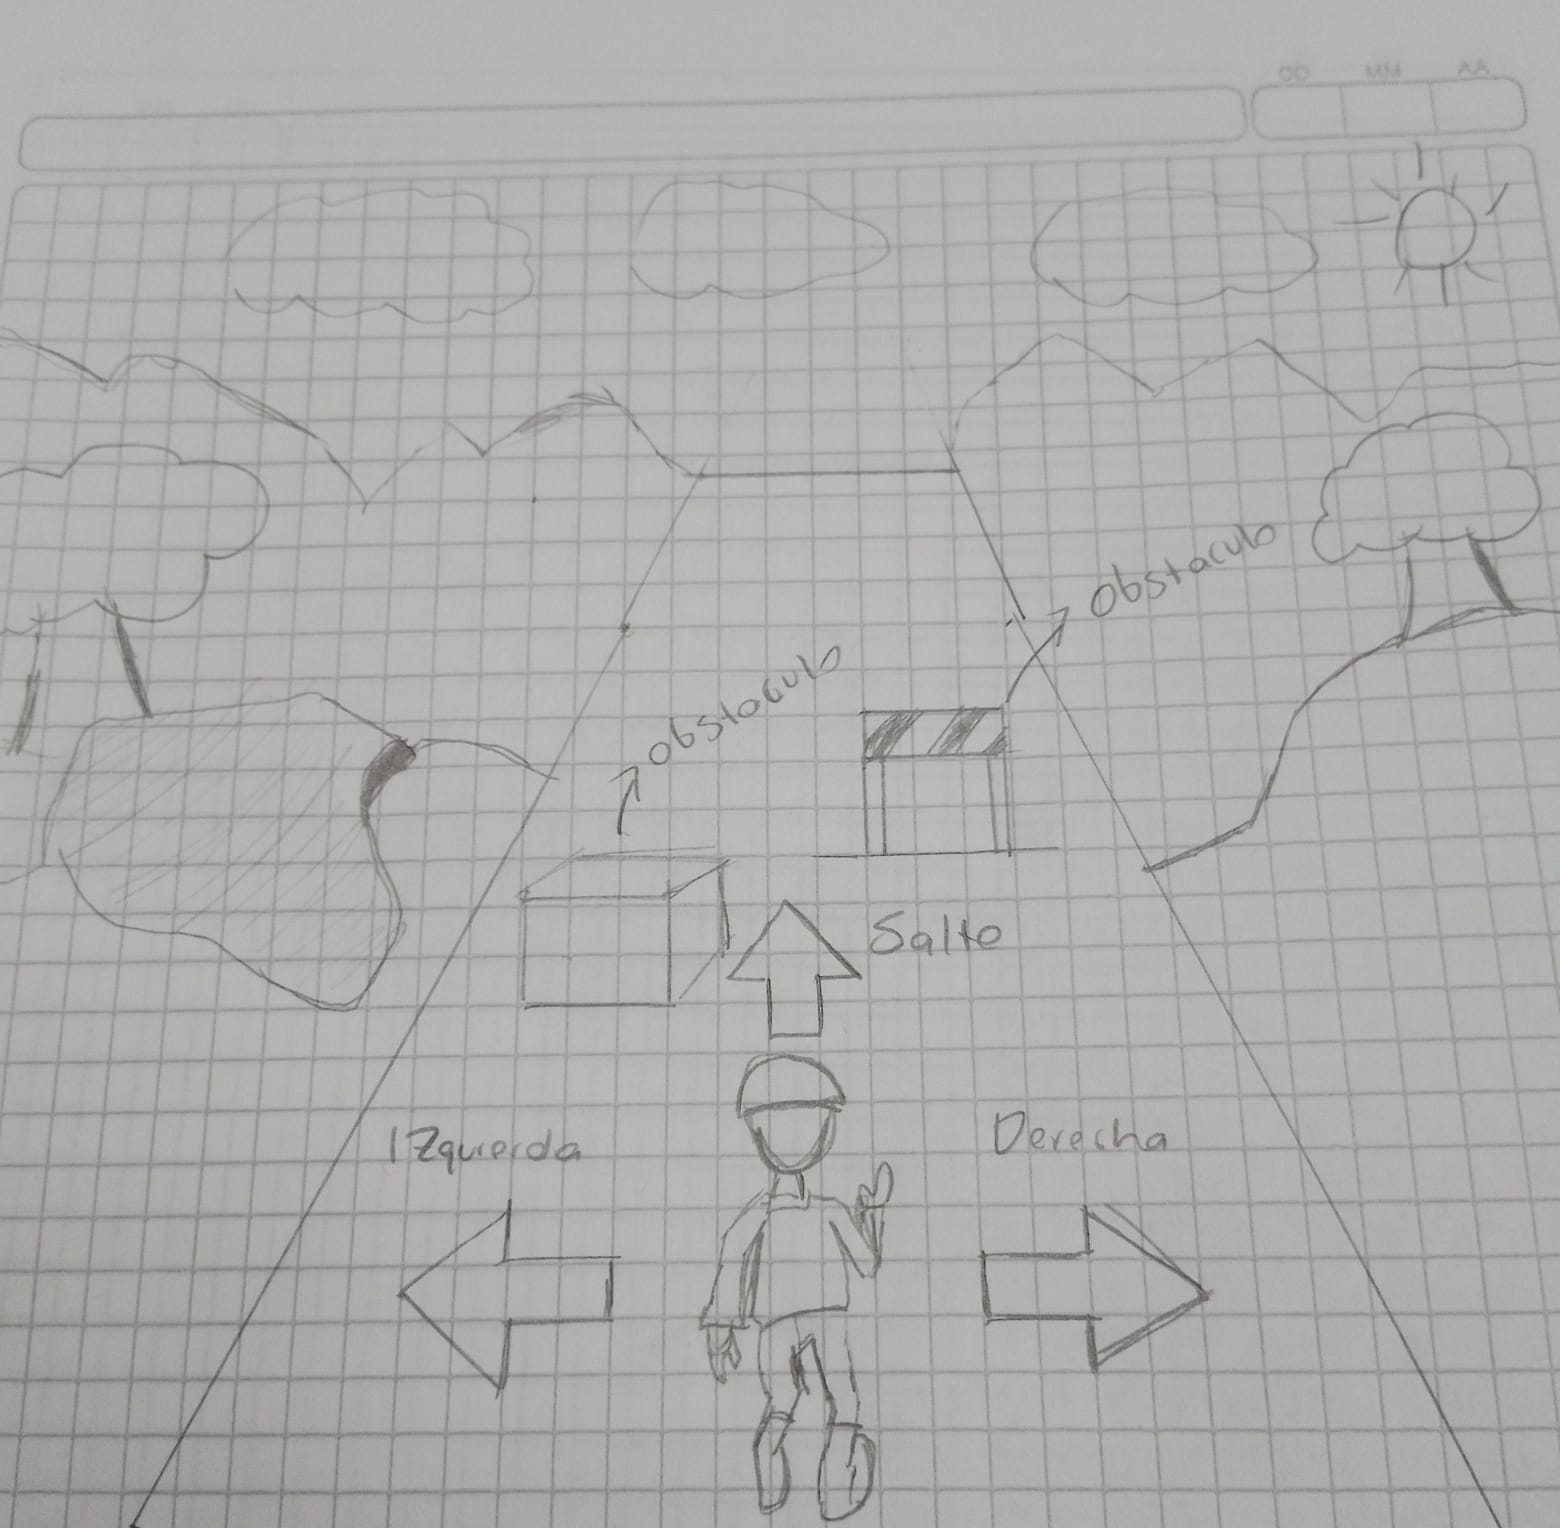 DD MM AA
Obstaculo
obstaculo
Salto
Izquierda
Derecha